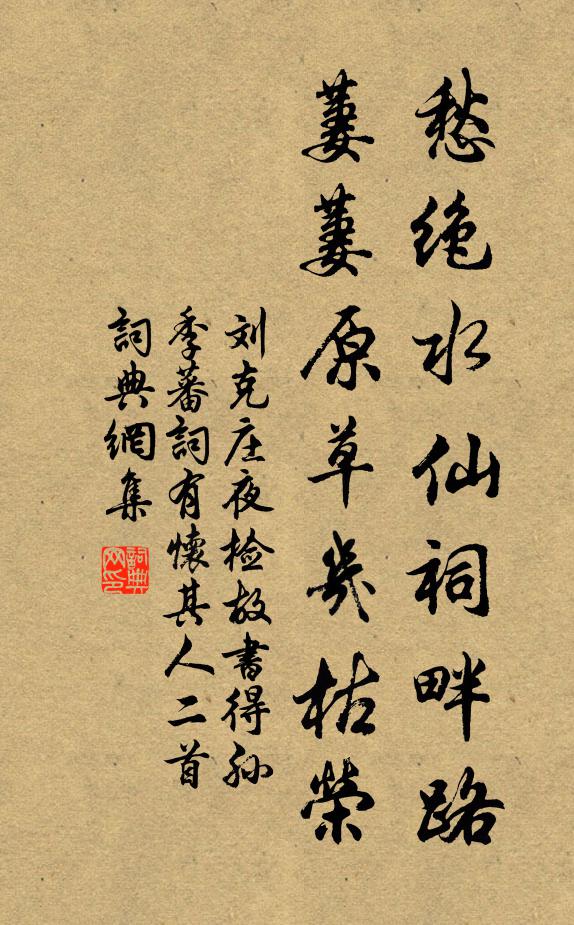 愁絶水仙祠畔路
萋萋原草幾枯榮
刘克庄夜检故書得孙
季蕃詞有懷其人二首
詞典網集
詞典网印